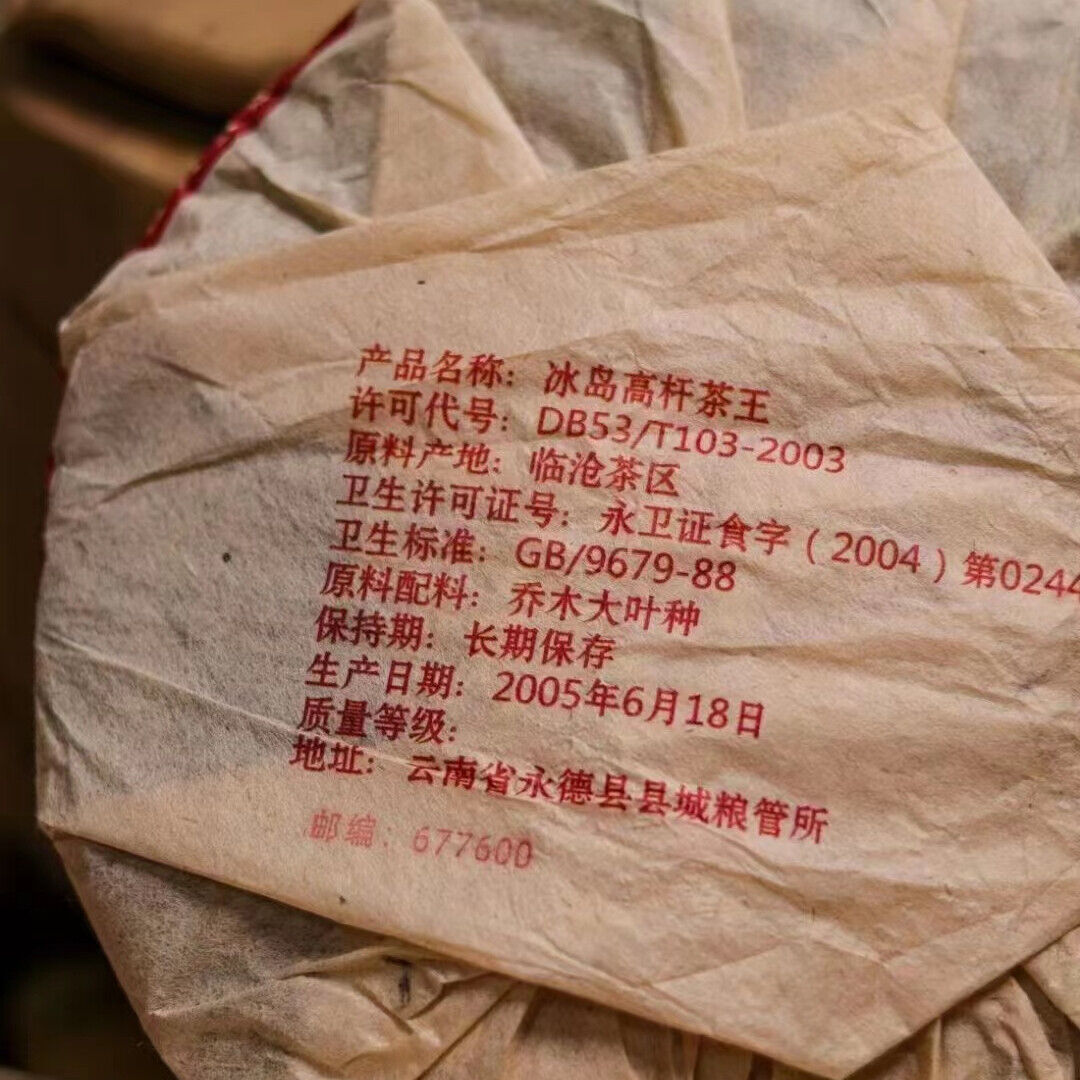 产品名称：冰岛高杆茶王
许可代号：DB53/T103-2003
原料产地：临沧茶区
卫生许可证号：永卫证食字（2004）第0244
卫生标准：GB/9679-88
原料配料：乔木大叶种
保持期：长期保存
生产日期：2005年6月18日
质量等级：
地址：云南省永德县县城粮管所
邮编：677600